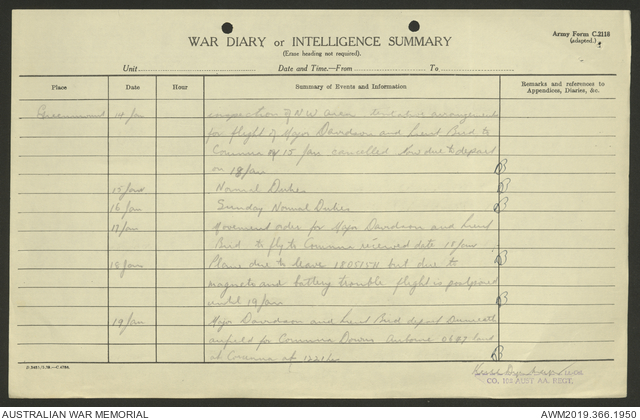 Army Form C.2118
(adapted.)
WAR DIARY or INTELLIGENCE SUMMARY
(Erase heading not required).
Unit Date and Time.—From To
Place Date Hour Summary of Events and Information Remarks and references to Appendices, Diaries, &c.
14 Jan inspection of N.W. area tentative arrangements
for flight of Major Davidson and Lieut Bird to
15 Jan cancelled now due to depart
on 18 Jan
15 Jan Normal Duties
16 Jan Sunday Normal Duties
17 Jan Movement order for Major Davidson and Lieut
Bird to fly to received date 18 Jan
18 Jan Plane due to leave 180515K but due to
magneto and battery trouble flight is postponed
until 19 Jan
19 Jan Major Davidson and Lieut Bird depart
airfield for Downs Airborne 0807 land
at 1221 hrs
CO, AUST AA. REGT.
AUSTRALIAN WAR MEMORIAL AWM2019.366.1950